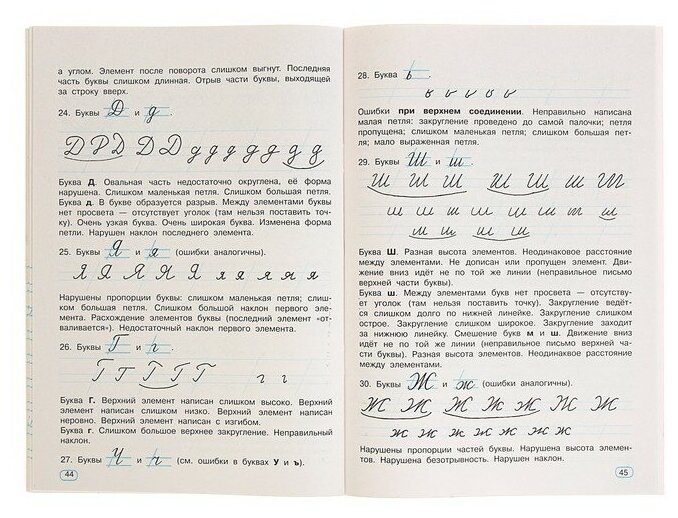 а углом. Элемент после поворота слишком выгнут. Последняя
часть буквы слишком длинная. Отрыв части буквы, выходящей
за строку вверх.
24. Буквы Д и д .
Д Д Д Д Д д д д д д д д
Буква Д. Овальная часть недостаточно округлена, её форма
нарушена. Слишком маленькая петля. Слишком большая петля.
Буква д. В букве образуется разрыв. Между элементами буквы
нет просвета — отсутствует уголок (там нельзя поставить точ-
ку). Очень узкая буква. Очень широкая буква. Изменена форма
петли. Нарушен наклон последнего элемента.
25. Буквы Я и я (ошибки аналогичны).
Я Я Я Я Я я я я я я
Нарушены пропорции буквы: слишком маленькая петля; слиш-
ком большая петля. Слишком большой наклон первого эле-
мента. Расхождение элементов буквы (последний элемент «от-
валивается»). Недостаточный наклон первого элемента.
26. Буквы Г и г .
Г Г Г Г Г г г
Буква Г. Верхний элемент написан слишком высоко. Верхний
элемент написан слишком низко. Верхний элемент написан
неровно. Верхний элемент написан с изгибом.
Буква г. Слишком большое верхнее закругление. Неправильный
наклон.
27. Буквы Ч и ч (см. ошибки в буквах У и ъ).
44
28. Буква ь .
ь ь ь ь ь
Ошибки при верхнем соединении. Неправильно написана
малая петля: закругление проведено до самой палочки; петля
пропущена; слишком маленькая петля; слишком большая пет-
ля; мало выраженная петля.
29. Буквы Ш и ш .
Ш Ш Ш Ш Ш Ш Ш
ш ш ш ш ш ш ш ш
ш ш ш ш
Буква Ш. Разная высота элементов. Неодинаковое расстояние
между элементами. Не дописан или пропущен элемент. Дви-
жение вниз идёт не по той же линии (неправильное письмо
верхней части буквы).
Буква ш. Между элементами букв нет просвета — отсутству-
ет уголок (там нельзя поставить точку). Закругление ведёт-
ся слишком долго по нижней линейке. Закругление слишком
острое. Закругление слишком широкое. Закругление заходит
за нижнюю линейку. Смешение букв м и ш. Движение вниз
идёт не по той же линии (неправильное письмо верхней ча-
сти буквы). Разная высота элементов. Неодинаковое расстояние
между элементами.
30. Буквы Ж и ж (ошибки аналогичны).
Ж Ж Ж Ж Ж Ж Ж
ж ж ж ж ж ж ж
Нарушены пропорции частей буквы. Нарушена высота элемен-
тов. Нарушена безотрывность. Нарушен наклон.
45